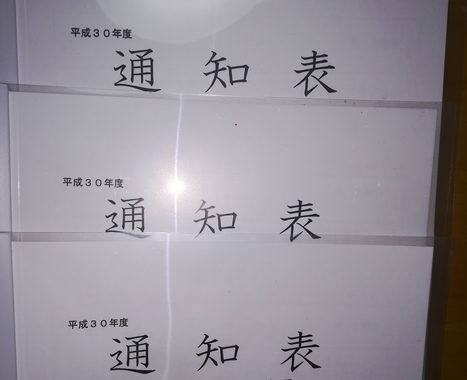 平成３０年度
通知表
平成３０年度
通知表
平成３０年度
通知表